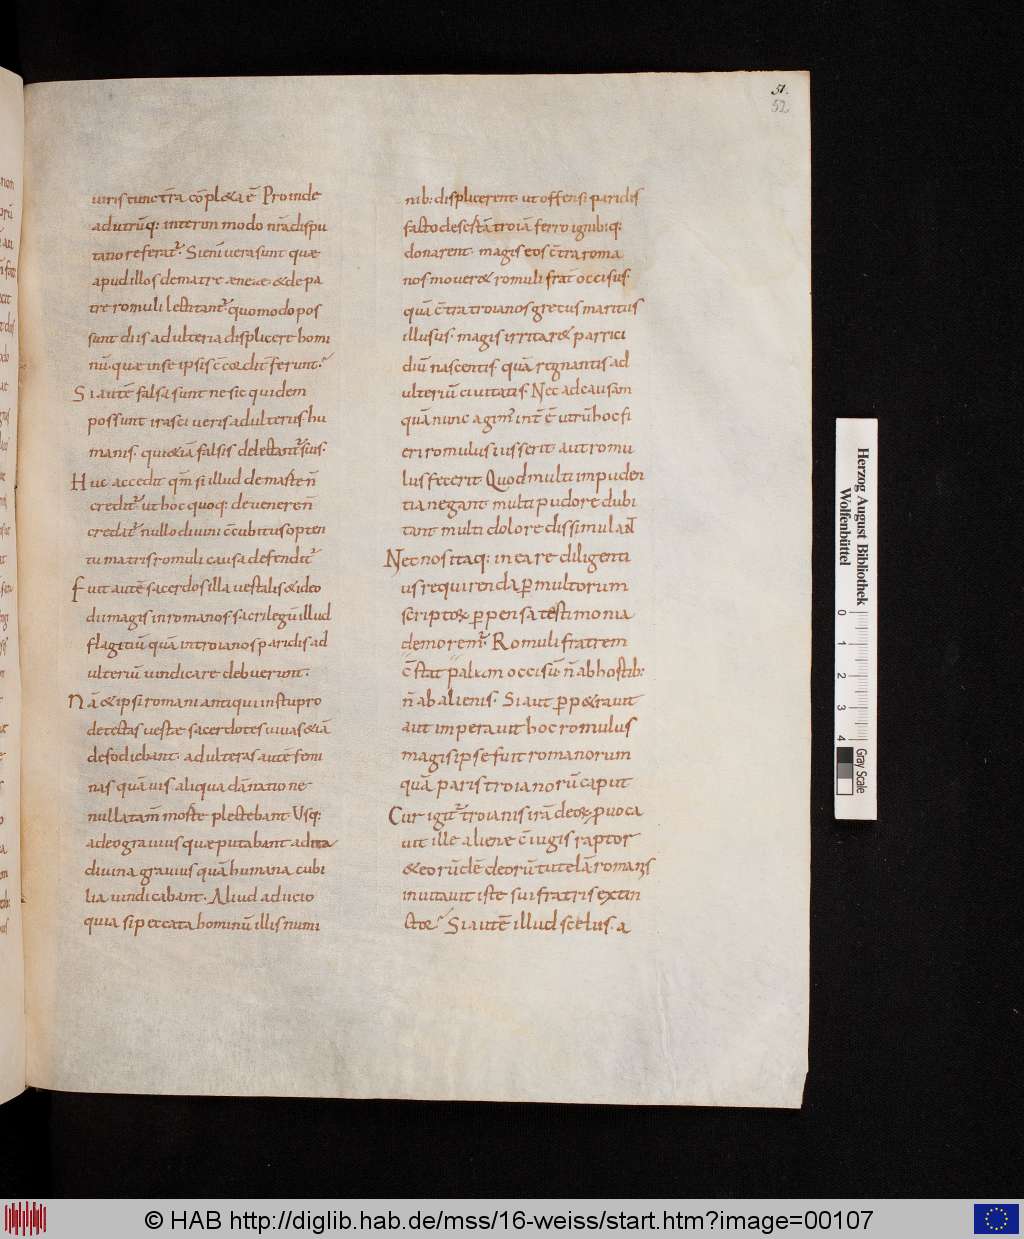 51.
52
iuris cunc tr̄ra cōpl&a ē Proinde
ad utrūq; interim modo nr̄a dispu
tatio referat᷑. Si enī uera sunt quæ
apud illos de matre æneae. & de pa
tre romuli lectitant᷑ quomodo pos
sunt diis adulteria displicere homi
nū. quæ in se ipsis c̄cordit᷑ ferunt.
Si autē falsa sunt ne sic quidem
possunt irasci ueris adulteriis hu
manis. qui &iā falsis delectant᷑ suis.
Huc accedit qm̄ si illud de maste n̄
credit᷑ ut hoc quoq; de uenere n̄
credat᷑ nullo diuini c̄cubitus opten
tu matris romuli causa defendit᷑
Fuit autē sacerdos illa uestalis & ideo
dii magis in romanos sacrilegū illud
flagitiū quā in troianos paridis ad
ulteriū uindicare debuerunt.
Nā & ipsi romani antiqui in stupro
detectas uestæ sacerdotes uiuas &iā
defodiebant. adulteras autē femi
nas quāuis aliqua dānatione
nulla tam̄ morte plectebant Usq;
adeo grauius quæ putabant adita
diuina grauius quā humana cubi
lia uindicabant. Aliud adiicio
quia si peccata hominū illis numi
nib; displicerent. ut offensi paridis
facto desertā troiā ferro ignibusq;
donarent. magis eos c̄tra roma
nos mouer& romuli frat̄ occisus
quā c̄tra troianos grecus maritus
illusus. magis irritar& parrici
diū nascentis quā regnantis ad
ulteriū ciuitatis. Nec ad causam
quā nunc agim᷑ int̄ ē utrū hoc fi
eri romulus iusserit aut romu
lus fecerit Quod multi impuden
tia negant multi pudore dubi
tant multi dolore dissimulant
Nec nos itaq; in ea re diligenti
us requirenda ꝑ multorum
scriptorꝫ ꝑpensa testimonia
demorem᷑. Romuli fratrem
c̄stat palam occisū n̄ ab hostib;
n̄ ab alienis. Si aut ꝑp&rauit
aut imperauit hoc romulus
magis ipse fuit romanorum
quā paris troianorū caput
Cur igit᷑ troianis irā deoꝝ ꝓuoca
uit ille alienæ c̄iugis raptor
& eorūdē deorū tutelā romanis
inuitauit iste sui fratris extin
ctor Si autē illud scelus. a
Herzog August Bibliothek
Wolfenbüttel
0 1 2 3 4
Gray Scale
© HAB http://diglib.hab.de/mss/16-weiss/start.htm?image=00107